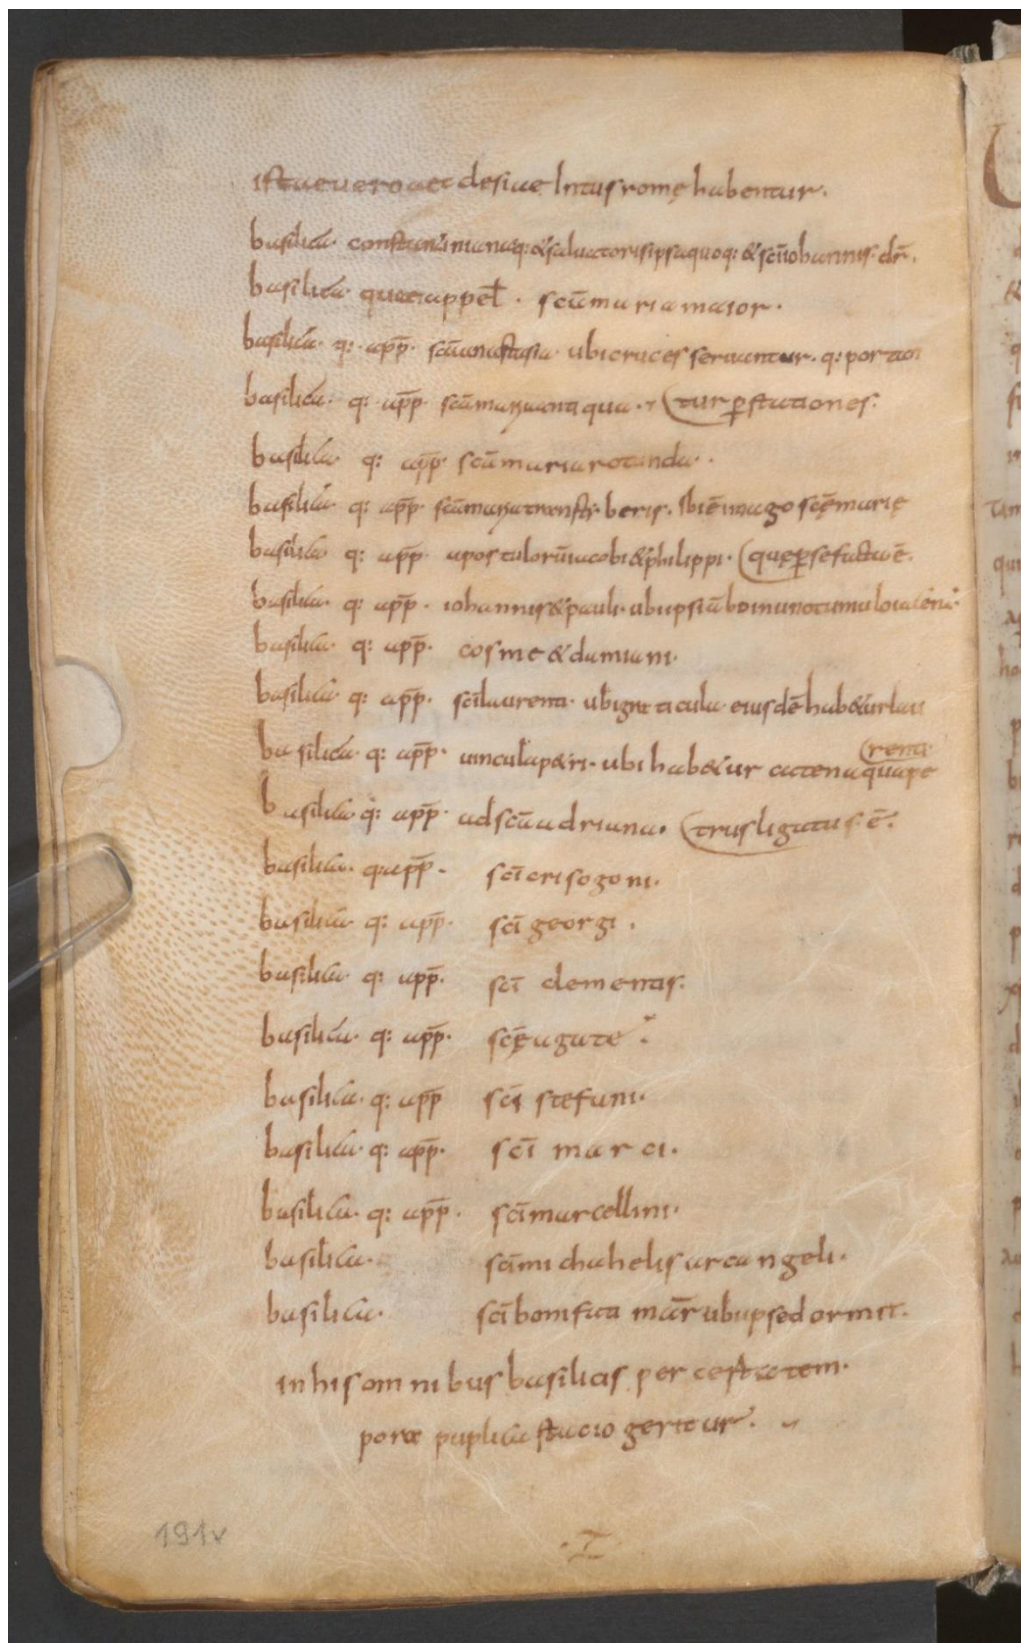 istae uero aecclesiae Intus romę habentur.
basilica constantiniana q: & saluatoris ipsa quoq: & scī iohannis dr̄.
basilica quae appel̄. scā maria maior.
basilica q: app̄. scā anastasia ubi cruces seruantur. q: portan
basilica q: app̄ scā maria antiqua. (tur p̱ stationes.
basilica q: app̄. scā maria rotunda.
basilica q: app̄ scā maria transtiberis. Ibi ē imago scę̄ marię
basilica q: app̄. apostolorū iacobi & philippi. (quę p̱ se facta ē.
basilica q: app̄. iohannis & pauli. ubi ipsi ambo in uno tumulo iacent.
basilica q: app̄. cosme & damiani.
basilica q: app̄. scī laurenti. ubi graticula eiusdē hab&ur lau
(renti.
basilica q: app̄. uincula p&ri. ubi hab&ur catena qua pe
basilica q: app̄. ad scā adriana. (trus ligatus ē.
basilica q: app̄. scī crisogoni.
basilica q: app̄. scī georgi.
basilica q: app̄. scī clementis.
basilica q: app̄. scę̄ agate.
basilica q: app̄ scī stefani.
basilica q: app̄. scī marci.
basilica q: app̄. scī marcellini.
basilica. scī michahelis arcangeli.
basilica. scī bonifati mar̄ ubi ipse dormit.
in his omnibus basilicis per certa tem
pora puplica stacio geritur.
191v